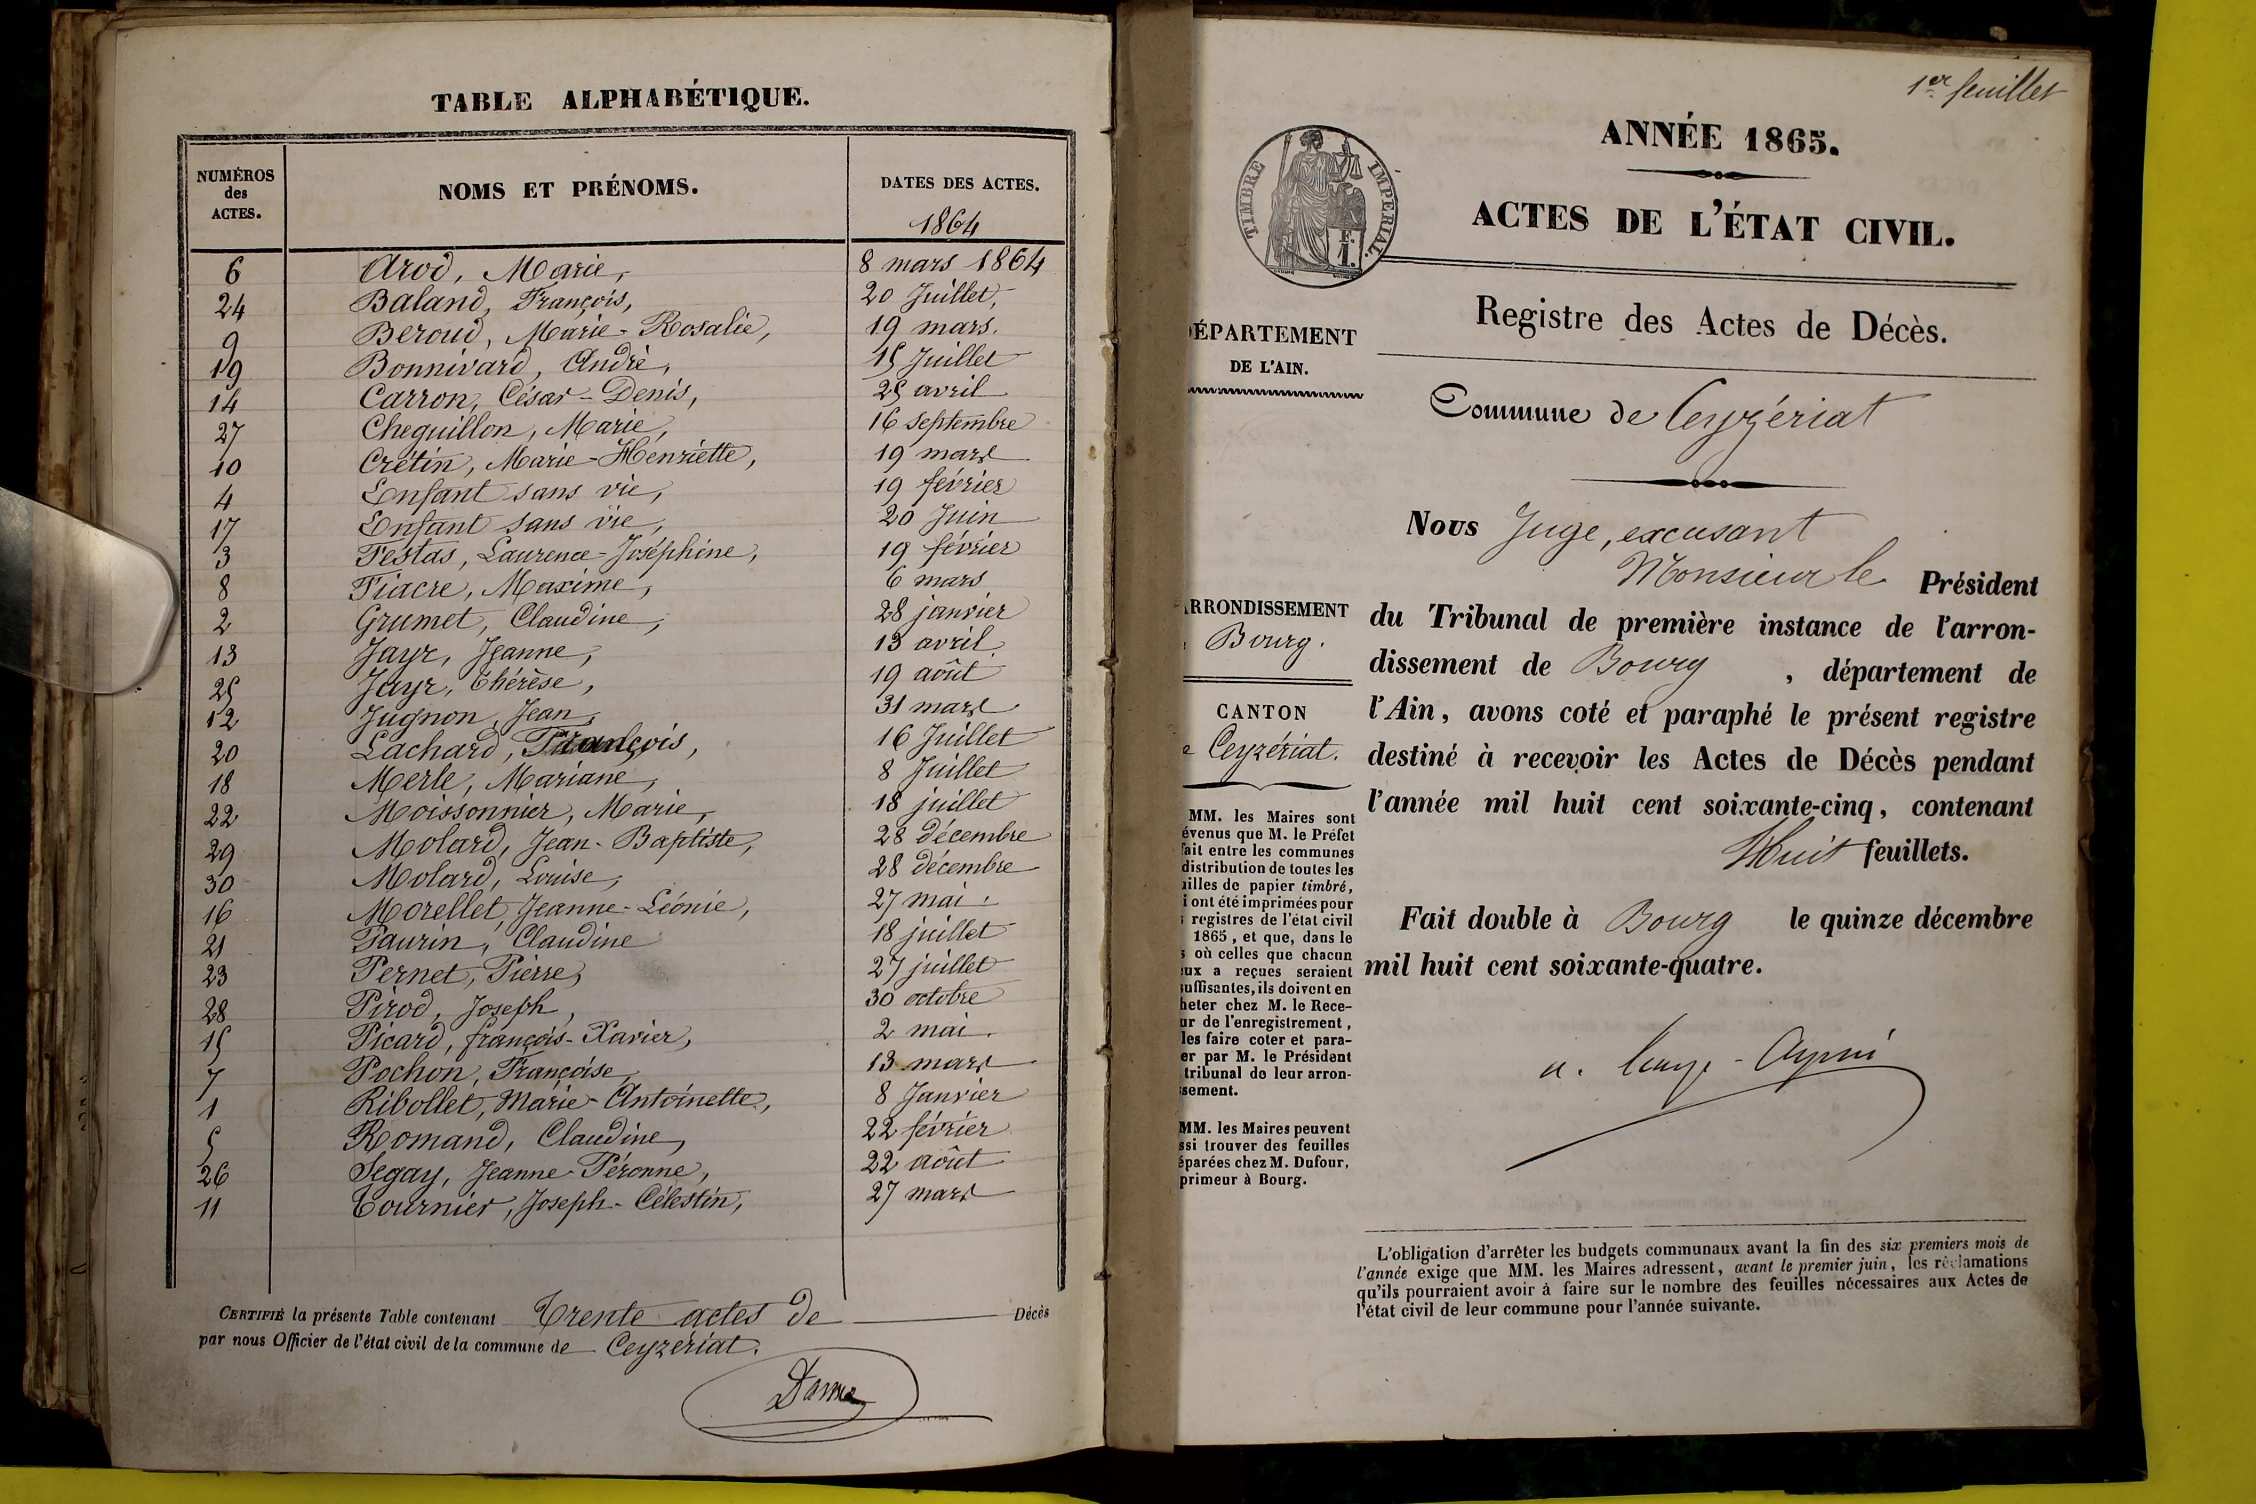 TABLE ALPHABÉTIQUE.
NUMÉROS des ACTES.
NOMS ET PRÉNOMS.
DATES DES ACTES.
1864
6 Arod, Marie, 8 mars 1864
24 Baland, François, 20 Juillet,
9 Beroud, Marie-Rosalie, 19 mars.
19 Bonnivard, André, 15 Juillet
14 Carron, César-Denis, 25 avril
27 Chequillon, Marie, 16 septembre
10 Crétin, Marie-Henriette, 19 mars
4 Enfant sans vie, 19 février
17 Enfant sans vie, 20 Juin
3 Festas, Laurence-Joséphine, 19 février
8 Fiacre, Maxime, 6 mars
2 Grumet, Claudine, 28 janvier
13 Jayr, Jeanne, 13 avril
25 Jayr, Thérèse, 19 août
12 Jugnon, Jean, 31 mars
20 Lachard, François, 16 Juillet
18 Merle, Mariane, 8 Juillet
22 Moissonnier, Marie, 18 juillet
29 Molard, Jean-Baptiste, 28 décembre
30 Molard, Louise, 28 décembre
16 Morellet, Jeanne-Léonie, 27 mai.
21 Paurin, Claudine 18 juillet
23 Pernet, Pierre, 27 juillet
28 Pirod, Joseph, 30 octobre
15 Picard, françois-Xavier, 2 mai.
7 Pochon, Françoise, 13 mars
1 Ribollet, Marie-Antoinette, 8 Janvier
5 Romand, Claudine, 22 février
26 Segay, Jeanne-Péronne, 22 août
11 Tournier, Joseph-Célestin, 27 mars
CERTIFIÉ la présente Table contenant Trente actes de Décès
par nous Officier de l'état civil de la commune de Ceyzériat.
1er feuillet
ANNÉE 1865.
TIMBRE IMPERIAL.
F.
1.
ACTES DE L'ÉTAT CIVIL.
Registre des Actes de Décès.
DÉPARTEMENT
DE L'AIN.
Commune de Ceyzériat
Nous Juge, excusant
Monsieur le Président
ARRONDISSEMENT
Bourg.
du Tribunal de première instance de l'arron-
dissement de Bourg, département de
l'Ain, avons coté et paraphé le présent registre
destiné à recevoir les Actes de Décès pendant
l'année mil huit cent soixante-cinq, contenant
Huit feuillets.
Fait double à Bourg le quinze décembre
mil huit cent soixante-quatre.
CANTON
e Ceyzériat.
MM. les Maires sont
évenus que M. le Préfet
fait entre les communes
distribution de toutes les
uilles de papier timbré,
i ont été imprimées pour
s registres de l'état civil
1865, et que, dans le
s où celles que chacun
eux a reçues seraient
suffisantes, ils doivent en
heter chez M. le Rece-
ur de l'enregistrement,
les faire coter et para-
er par M. le Président
tribunal de leur arron-
ssement.
MM. les Maires peuvent
ssi trouver des feuilles
éparées chez M. Dufour,
primeur à Bourg.
L'obligation d'arrêter les budgets communaux avant la fin des six premiers mois de
l'année exige que MM. les Maires adressent, avant le premier juin, les réclamations
qu'ils pourraient avoir à faire sur le nombre des feuilles nécessaires aux Actes de
l'état civil de leur commune pour l'année suivante.